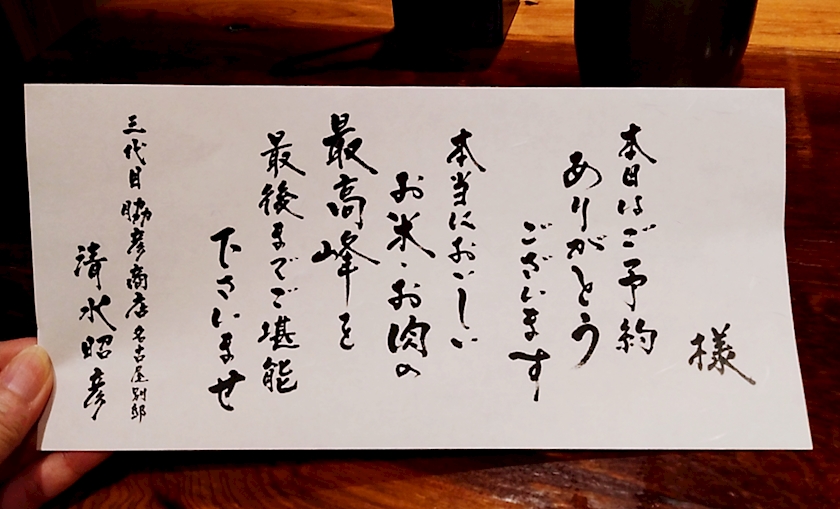 様
本日はご予約
ありがとう
ございます
本当においしい
お米・お肉の
最高峰を
最後までご堪能
下さいませ
三代目脇彦商店名古屋別邸
清水昭彦